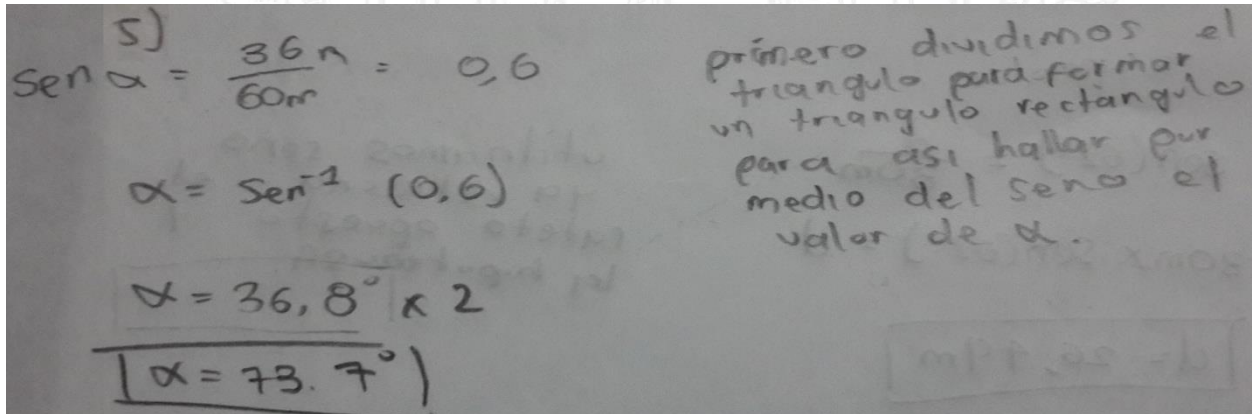 5)
Sen α = 36m / 60m = 0,6
α = Sen⁻¹ (0,6)
α = 36,8° x 2
α = 73.7°
primero dividimos el
triangulo para formar
un triangulo rectángulo
para asi hallar por
medio del seno el
valor de α.